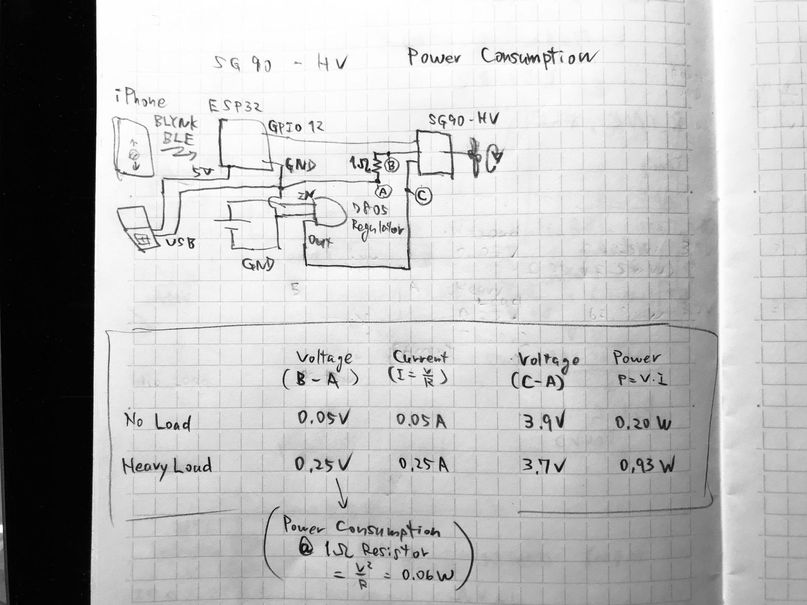 SG90 - HV Power Consumption
iPhone
BLYNK
BLE
ESP32
GPIO 12
GND
5V
USB
1Ω
B
A
C
SG90-HV
IN
7805
Regulator
Out
GND
Voltage
(B-A)
Current
(I = V/R)
Voltage
(C-A)
Power
P=V·I
No Load 0.05V 0.05A 3.9V 0.20W
Heavy Load 0.25V 0.25A 3.7V 0.93W
(Power Consumption
@ 1Ω Resistor
= V²/R = 0.06W)